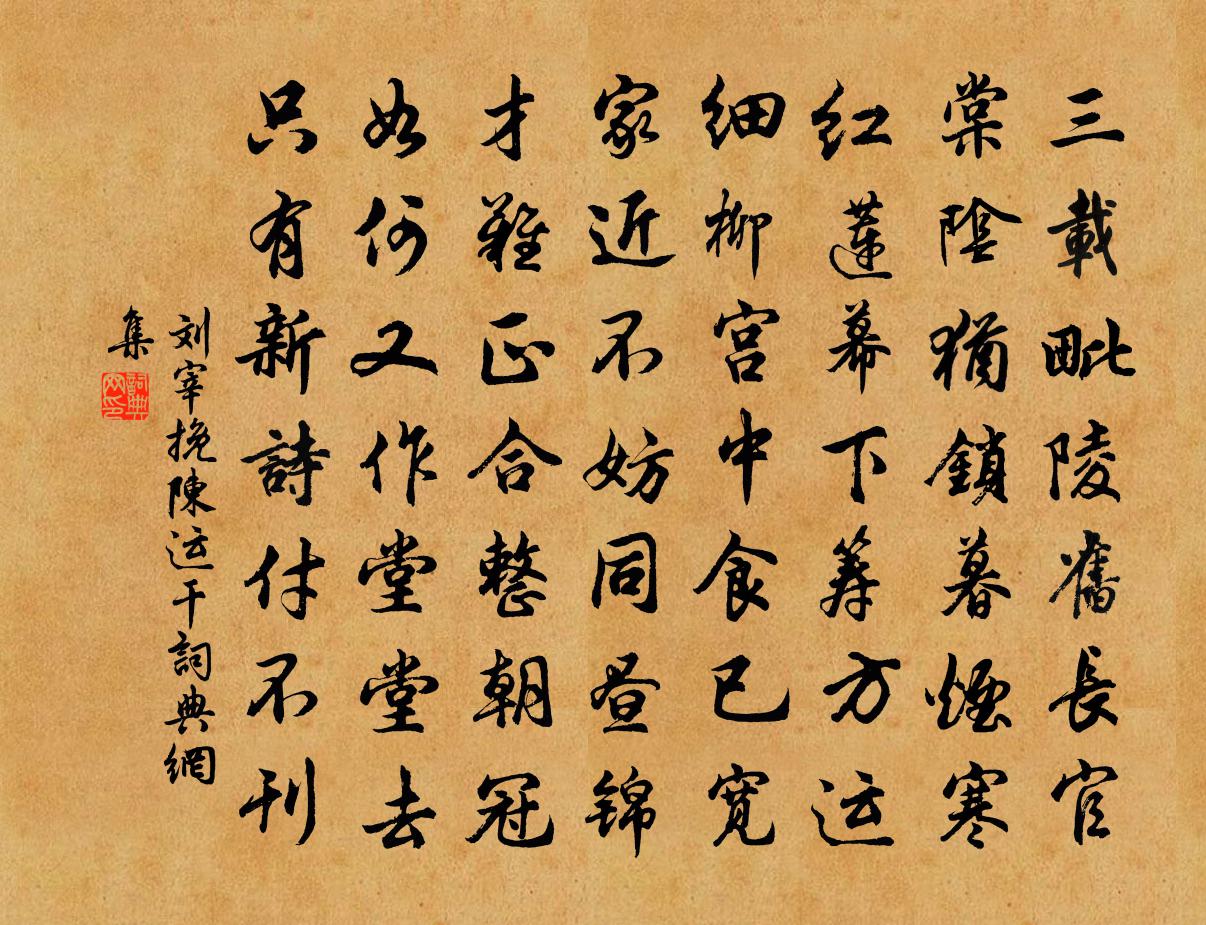 三載毗陵舊長官
棠陰猶鎖暮煙寒
红蓮幕下籌方运
细柳宫中食已寬
家近不妨同晝錦
才難正合整朝冠
如何又作堂堂去
只有新詩付不刊
刘宰挽陳运干詞典網
集
詞典
网印